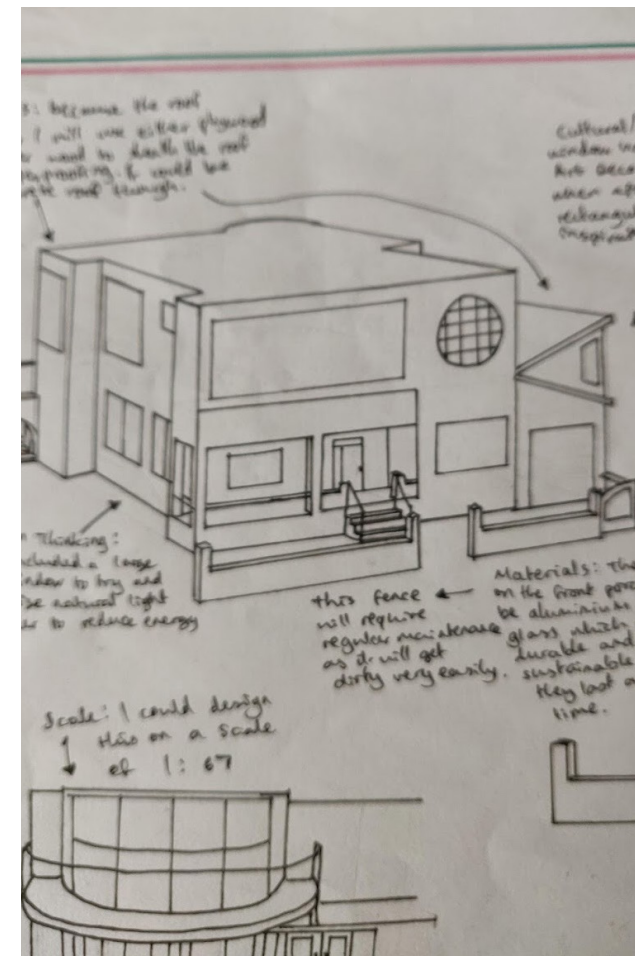 s: because the roof
I will use either plywood
wood to sheath the roof
proofing. It could be
roof through.
Cultural/
window
Art Deco
when
rectangul
inspirat
Thinking:
included a large
ndow to try and
ise natural light
er to reduce energy
this fence
will require
regular maintenance
as it will get
dirty very easily.
Materials: The
on the front porc
be aluminium
glass which
durable and
sustainable
they last a
time.
Scale: I could design
this on a scale
of 1:67